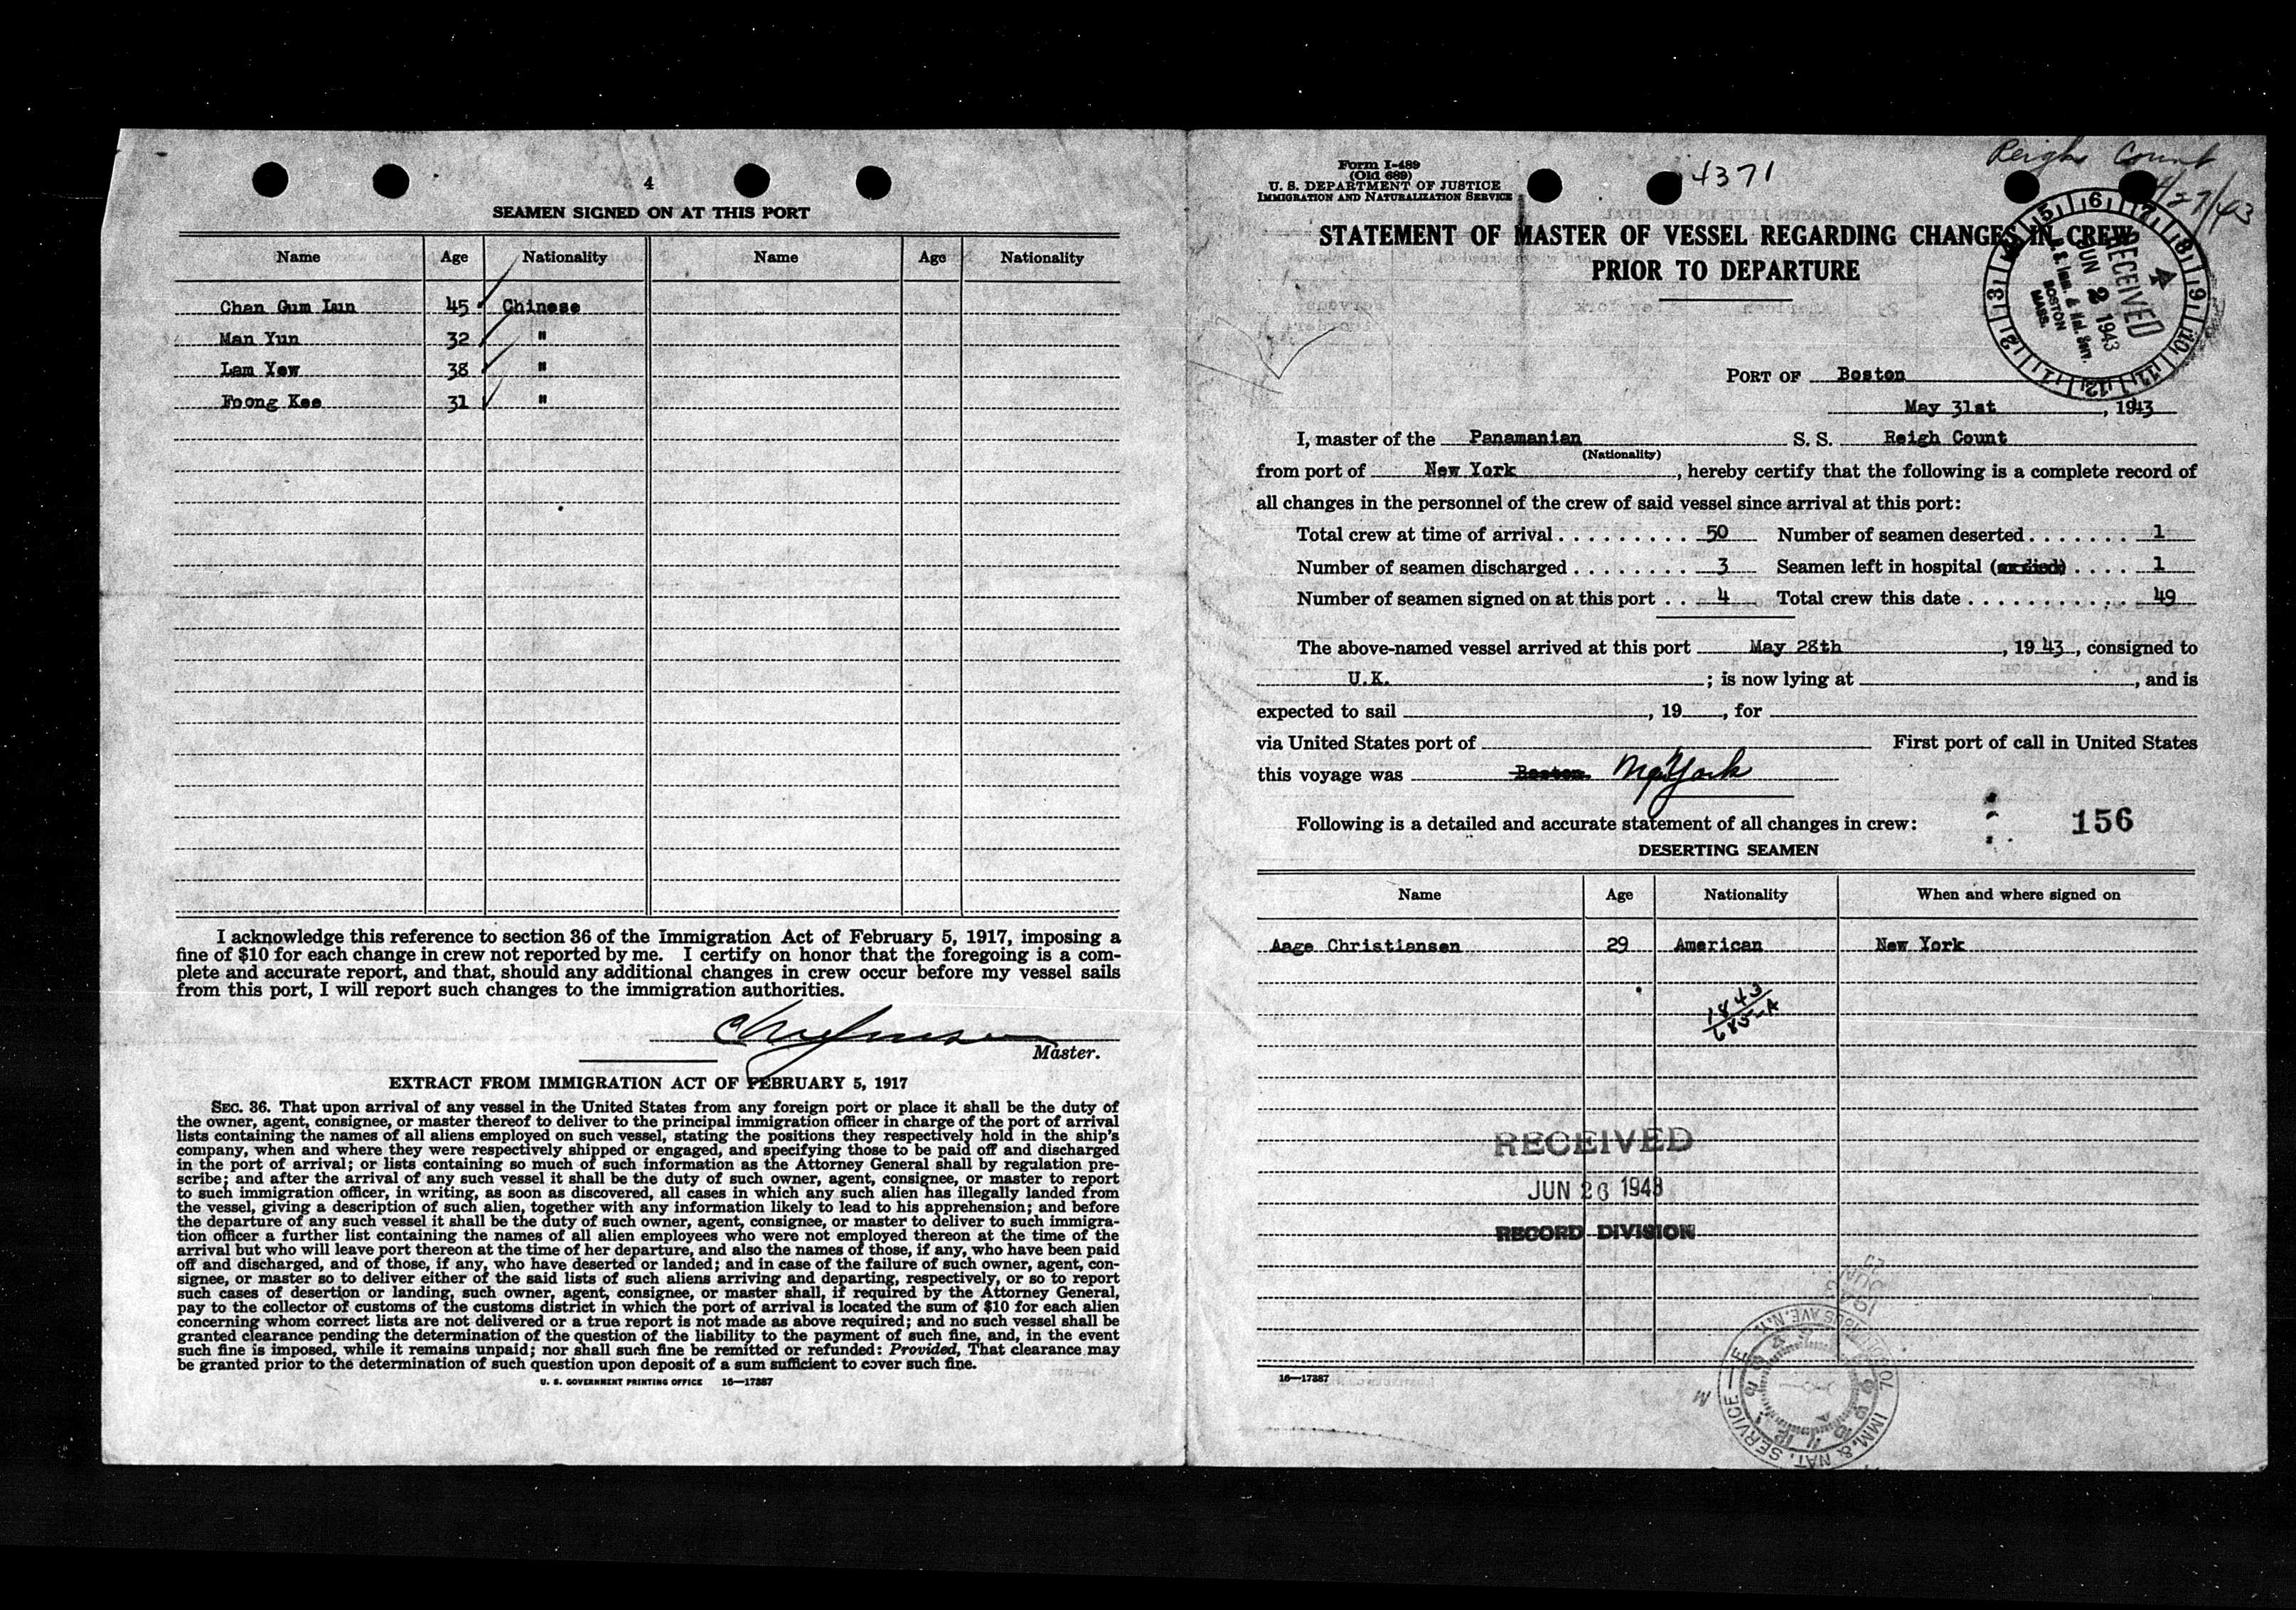 4
SEAMEN SIGNED ON AT THIS PORT
Name Age Nationality Name Age Nationality
Chan Gum Lun 45 Chinese
Man Yun 32 "
Lam Yew 38 "
Foong Kee 31 "
I acknowledge this reference to section 36 of the Immigration Act of February 5, 1917, imposing a
fine of $10 for each change in crew not reported by me. I certify on honor that the foregoing is a com-
plete and accurate report, and that, should any additional changes in crew occur before my vessel sails
from this port, I will report such changes to the immigration authorities.
Master.
EXTRACT FROM IMMIGRATION ACT OF FEBRUARY 5, 1917
SEC. 36. That upon arrival of any vessel in the United States from any foreign port or place it shall be the duty of
the owner, agent, consignee, or master thereof to deliver to the principal immigration officer in charge of the port of arrival
lists containing the names of all aliens employed on such vessel, stating the positions they respectively hold in the ship's
company, when and where they were respectively shipped or engaged, and specifying those to be paid off and discharged
in the port of arrival; or lists containing so much of such information as the Attorney General shall by regulation pre-
scribe; and after the arrival of any such vessel it shall be the duty of such owner, agent, consignee, or master to report
to such immigration officer, in writing, as soon as discovered, all cases in which any such alien has illegally landed from
the vessel, giving a description of such alien, together with any information likely to lead to his apprehension; and before
the departure of any such vessel it shall be the duty of such owner, agent, consignee, or master to deliver to such immigra-
tion officer a further list containing the names of all alien employees who were not employed thereon at the time of the
arrival but who will leave port thereon at the time of her departure, and also the names of those, if any, who have been paid
off and discharged, and of those, if any, who have deserted or landed; and in case of the failure of such owner, agent, con-
signee, or master so to deliver either of the said lists of such aliens arriving and departing, respectively, or so to report
such cases of desertion or landing, such owner, agent, consignee, or master shall, if required by the Attorney General,
pay to the collector of customs of the customs district in which the port of arrival is located the sum of $10 for each alien
concerning whom correct lists are not delivered or a true report is not made as above required; and no such vessel shall be
granted clearance pending the determination of the question of the liability to the payment of such fine, and, in the event
such fine is imposed, while it remains unpaid; nor shall such fine be remitted or refunded: Provided, That clearance may
be granted prior to the determination of such question upon deposit of a sum sufficient to cover such fine.
U. S. GOVERNMENT PRINTING OFFICE 16—17387
Form I-489
(Old 689)
U. S. DEPARTMENT OF JUSTICE
IMMIGRATION AND NATURALIZATION SERVICE
4371
Reigh Count
4/27/43
STATEMENT OF MASTER OF VESSEL REGARDING CHANGES IN CREW
PRIOR TO DEPARTURE
RECEIVED
JUN 2 1943
U. S. Imm. & Nat. Serv.
BOSTON
MASS.
PORT OF Boston
May 31st, 1943
I, master of the Panamanian S. S. Reigh Count
(Nationality)
from port of New York, hereby certify that the following is a complete record of
all changes in the personnel of the crew of said vessel since arrival at this port:
Total crew at time of arrival . . . . . . . . . 50 Number of seamen deserted . . . . . . . 1
Number of seamen discharged . . . . . . . . 3 Seamen left in hospital (or died) . . . . 1
Number of seamen signed on at this port . . 4 Total crew this date . . . . . . . . . . . 49
The above-named vessel arrived at this port May 28th, 1943, consigned to
U.K. ; is now lying at , and is
expected to sail , 19 , for
via United States port of First port of call in United States
this voyage was Boston New York
Following is a detailed and accurate statement of all changes in crew:
156
DESERTING SEAMEN
Name Age Nationality When and where signed on
Aage Christiansen 29 American New York
1843
685-A
RECEIVED
JUN 26 1943
RECORD DIVISION
16—17387
IMM. & NAT. SERVICE